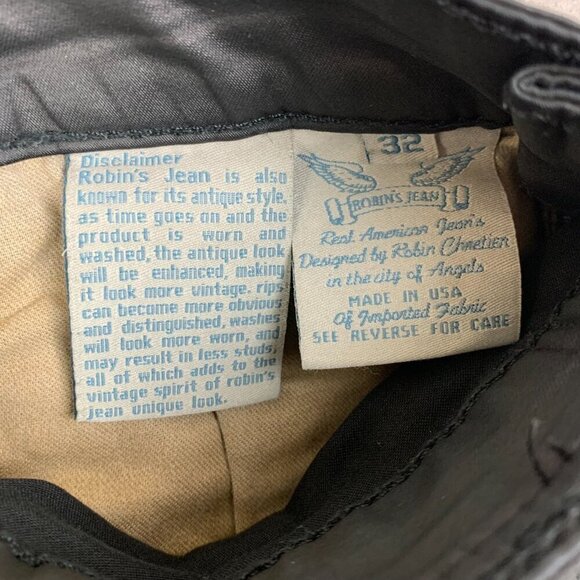 Disclaimer
Robin's Jean is also
known for its antique style.
as time goes on and the
product is worn and
washed, the antique look
will be enhanced, making
it look more vintage. rips
can become more obvious
and distinguished, washes
will look more worn, and
may result in less studs,
all of which adds to the
vintage spirit of robin's
jean unique look.
32
ROBIN'S JEAN
Real American Jean's
Designed by Robin Chretien
in the city of Angels
MADE IN USA
Of Imported Fabric
SEE REVERSE FOR CARE